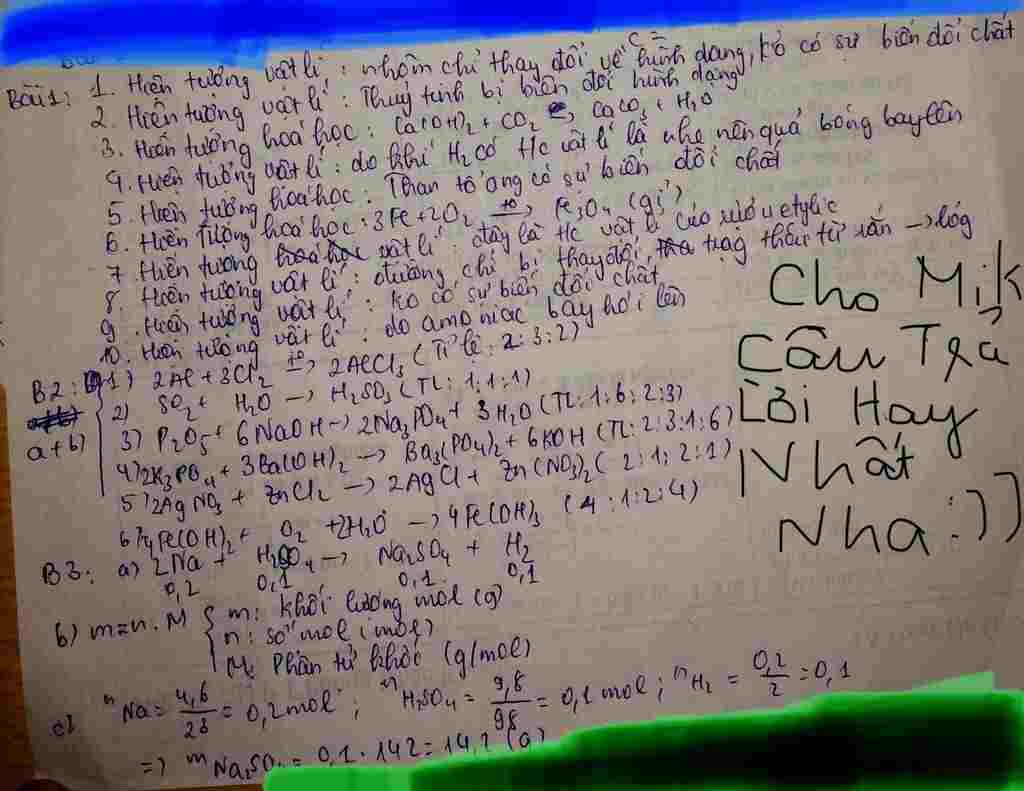 c =
Bài 1: 1. Hiện tượng vật lí: nhôm chỉ thay đổi về hình dạng, ko có sự biến đổi chất
2. Hiện tượng vật lí: Thuỷ tinh bị biến đổi hình dạng
3. Hiện tượng hoá học: Ca(OH)₂ + CO₂ → CaCO₃ + H₂O
4. Hiện tượng vật lí: do khí H₂ có tc vật lí là nhẹ nên quả bóng bay lên
5. Hiện tượng hoá học: Than tổ ong có sự biến đổi chất
6. Hiện tượng hoá học: 3Fe + 2O₂ t⁰→ Fe₃O₄ (gỉ)
7. Hiện tượng vật lí: đây là tc vật lí của rượu etylic
8. Hiện tượng vật lí: đường chỉ bị thay đổi trạg thái từ rắn → lỏg
9. Hiện tượng vật lí: ko có sự biến đổi chất
10. Hiện tượng vật lí: do amoniac bay hơi lên
B2: 1) 2Al + 3Cl₂ t⁰→ 2AlCl₃ (Tỉ lệ: 2:3:2)
a+b) 2) SO₂ + H₂O → H₂SO₃ (TL: 1:1:1)
3) P₂O₅ + 6NaOH → 2Na₃PO₄ + 3H₂O (TL: 1:6:2:3)
4) 2K₃PO₄ + 3Ba(OH)₂ → Ba₃(PO₄)₂ + 6KOH (TL: 2:3:1:6)
5) 2AgNO₃ + ZnCl₂ → 2AgCl + Zn(NO₃)₂ (2:1:2:1)
6) 4Fe(OH)₂ + O₂ + 2H₂O → 4Fe(OH)₃ (4:1:2:4)
B3: a) 2Na + H₂SO₄ → Na₂SO₄ + H₂
0,2 0,1 0,1 0,1
b) m = n.M { m: khối lượng mol (g)
n: số mol (mol)
M: Phân tử khối (g/mol)
c) nNa = 4,6/23 = 0,2 mol; nH₂SO₄ = 9,8/98 = 0,1 mol; nH₂ = 0,2/2 = 0,1
=> mNa₂SO₄ = 0,1 . 142 = 14,2 (g)
Cho Mik
Câu Trả
Lời Hay
Nhất
Nha :))